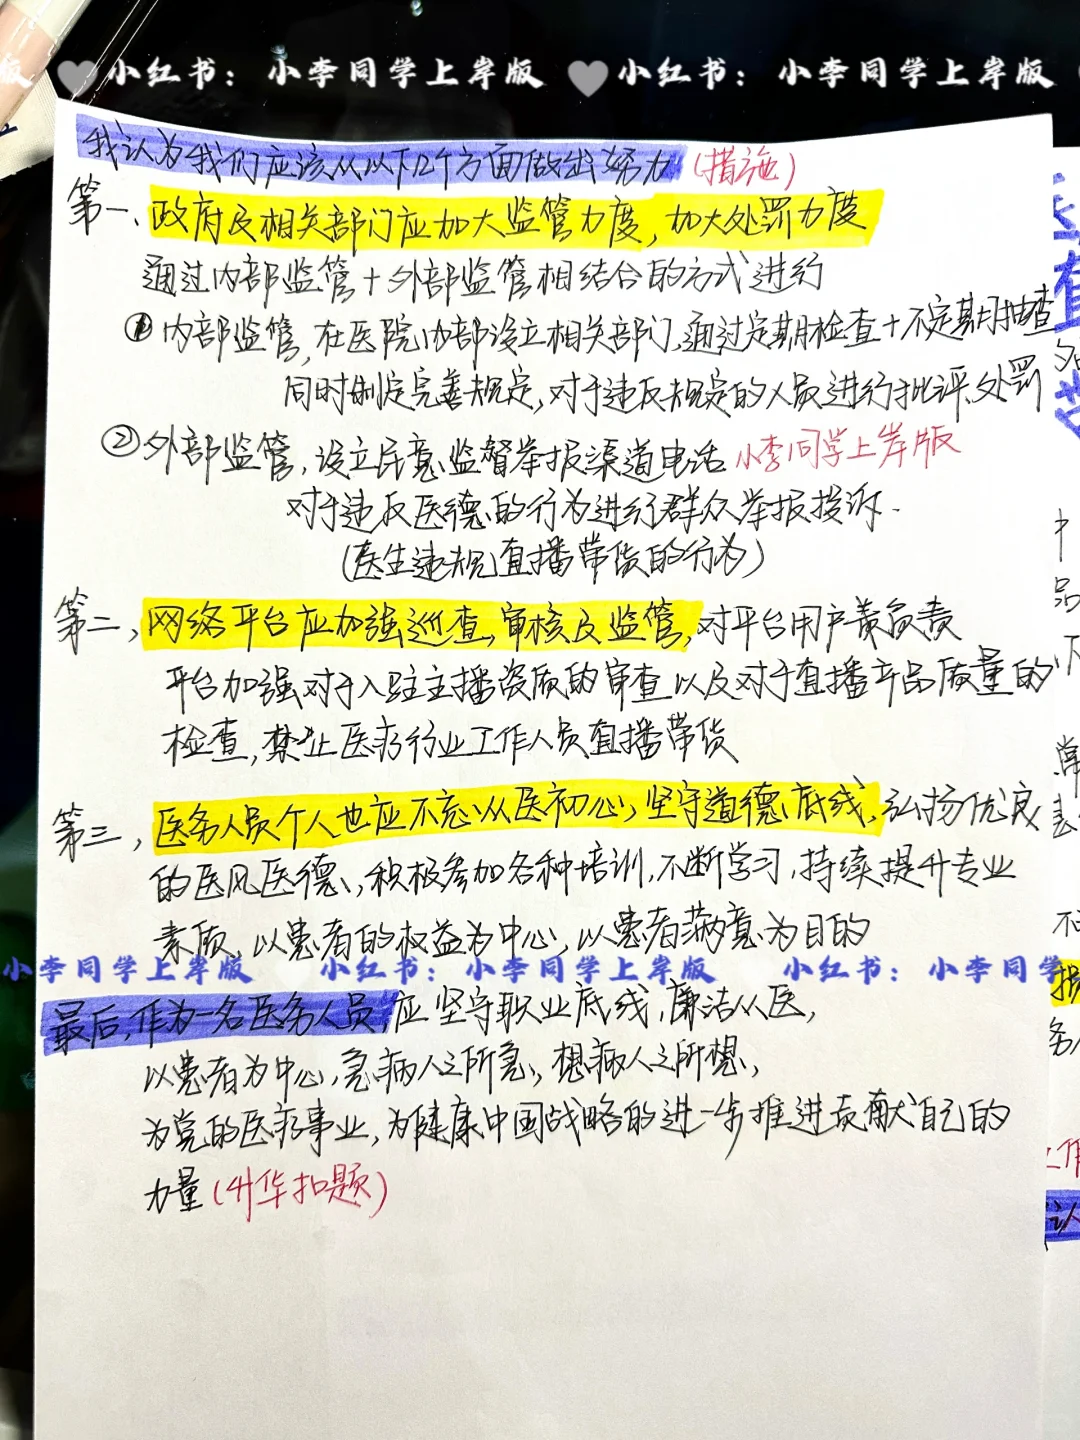 小红书：小李同学上岸版 小红书：小李同学上岸版
我认为我们应该从以下几个方面做出努力（措施）
第一、政府及相关部门应加大监管力度，加大处罚力度
通过内部监管+外部监管相结合的方式进行
①内部监管，在医院内部设立相关部门，通过定期检查+不定期抽查
同时制定完善规定，对于违反规定的人员进行批评、处罚
②外部监管，设立民意监督举报渠道电话 小李同学上岸版
对于违反医德的行为进行群众举报投诉.
（医生违规直播带货的行为）
第二，网络平台应加强巡查，审核及监管，对平台用户责负责
平台加强对于入驻主播资质的审查以及对于直播产品质量的
检查，禁止医疗行业工作人员直播带货
第三，医务人员个人也应不忘从医初心，坚守道德底线，弘扬优良
的医风医德、积极参加各种培训，不断学习，持续提升专业
素质，以患者的权益为中心，以患者满意为目的
小李同学上岸版 小红书：小李同学上岸版 小红书：小李同学
最后，作为一名医务人员，应坚守职业底线，廉洁从医，
以患者为中心，急病人之所急，想病人之所想、
为党的医疗事业，为健康中国战略的进一步推进贡献自己的
力量（升华扣题）